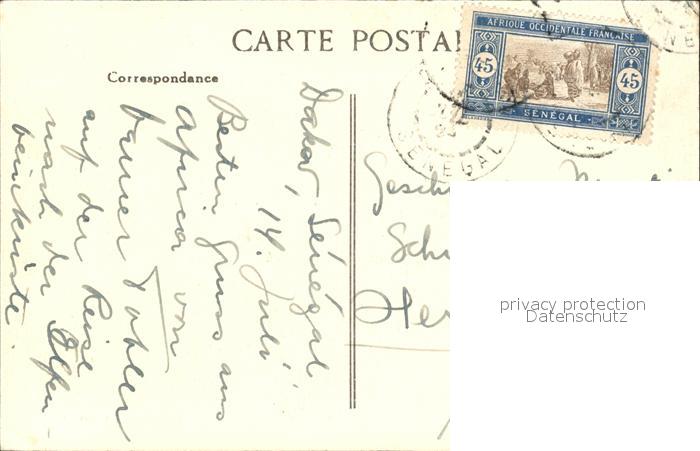 CARTE POSTA
Correspondance
AFRIQUE OCCIDENTALE FRANÇAISE
45 45
SÉNÉGAL
SENEGAL
Dakar, Sénégal
14. Juli
Besten Gruss aus
Africa von
auf der Reise
nach der Elfen-
beinküste.
Gesch
Sch
Her
privacy protection
Datenschutz